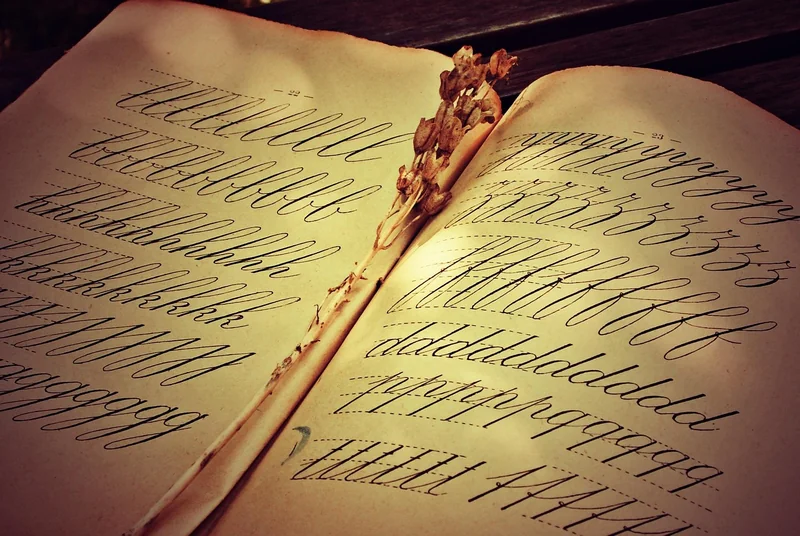 22
llllllllllll
bbbbbbbbbbb
hhhhhhhhhhh
kkkkkkkkkk
ggggggggg
23
yyyyyyyyyyyy
zzzzzzzzzz
ffffffffffff
ddddddddddddd
ppppppqqqqqq
tttttttt